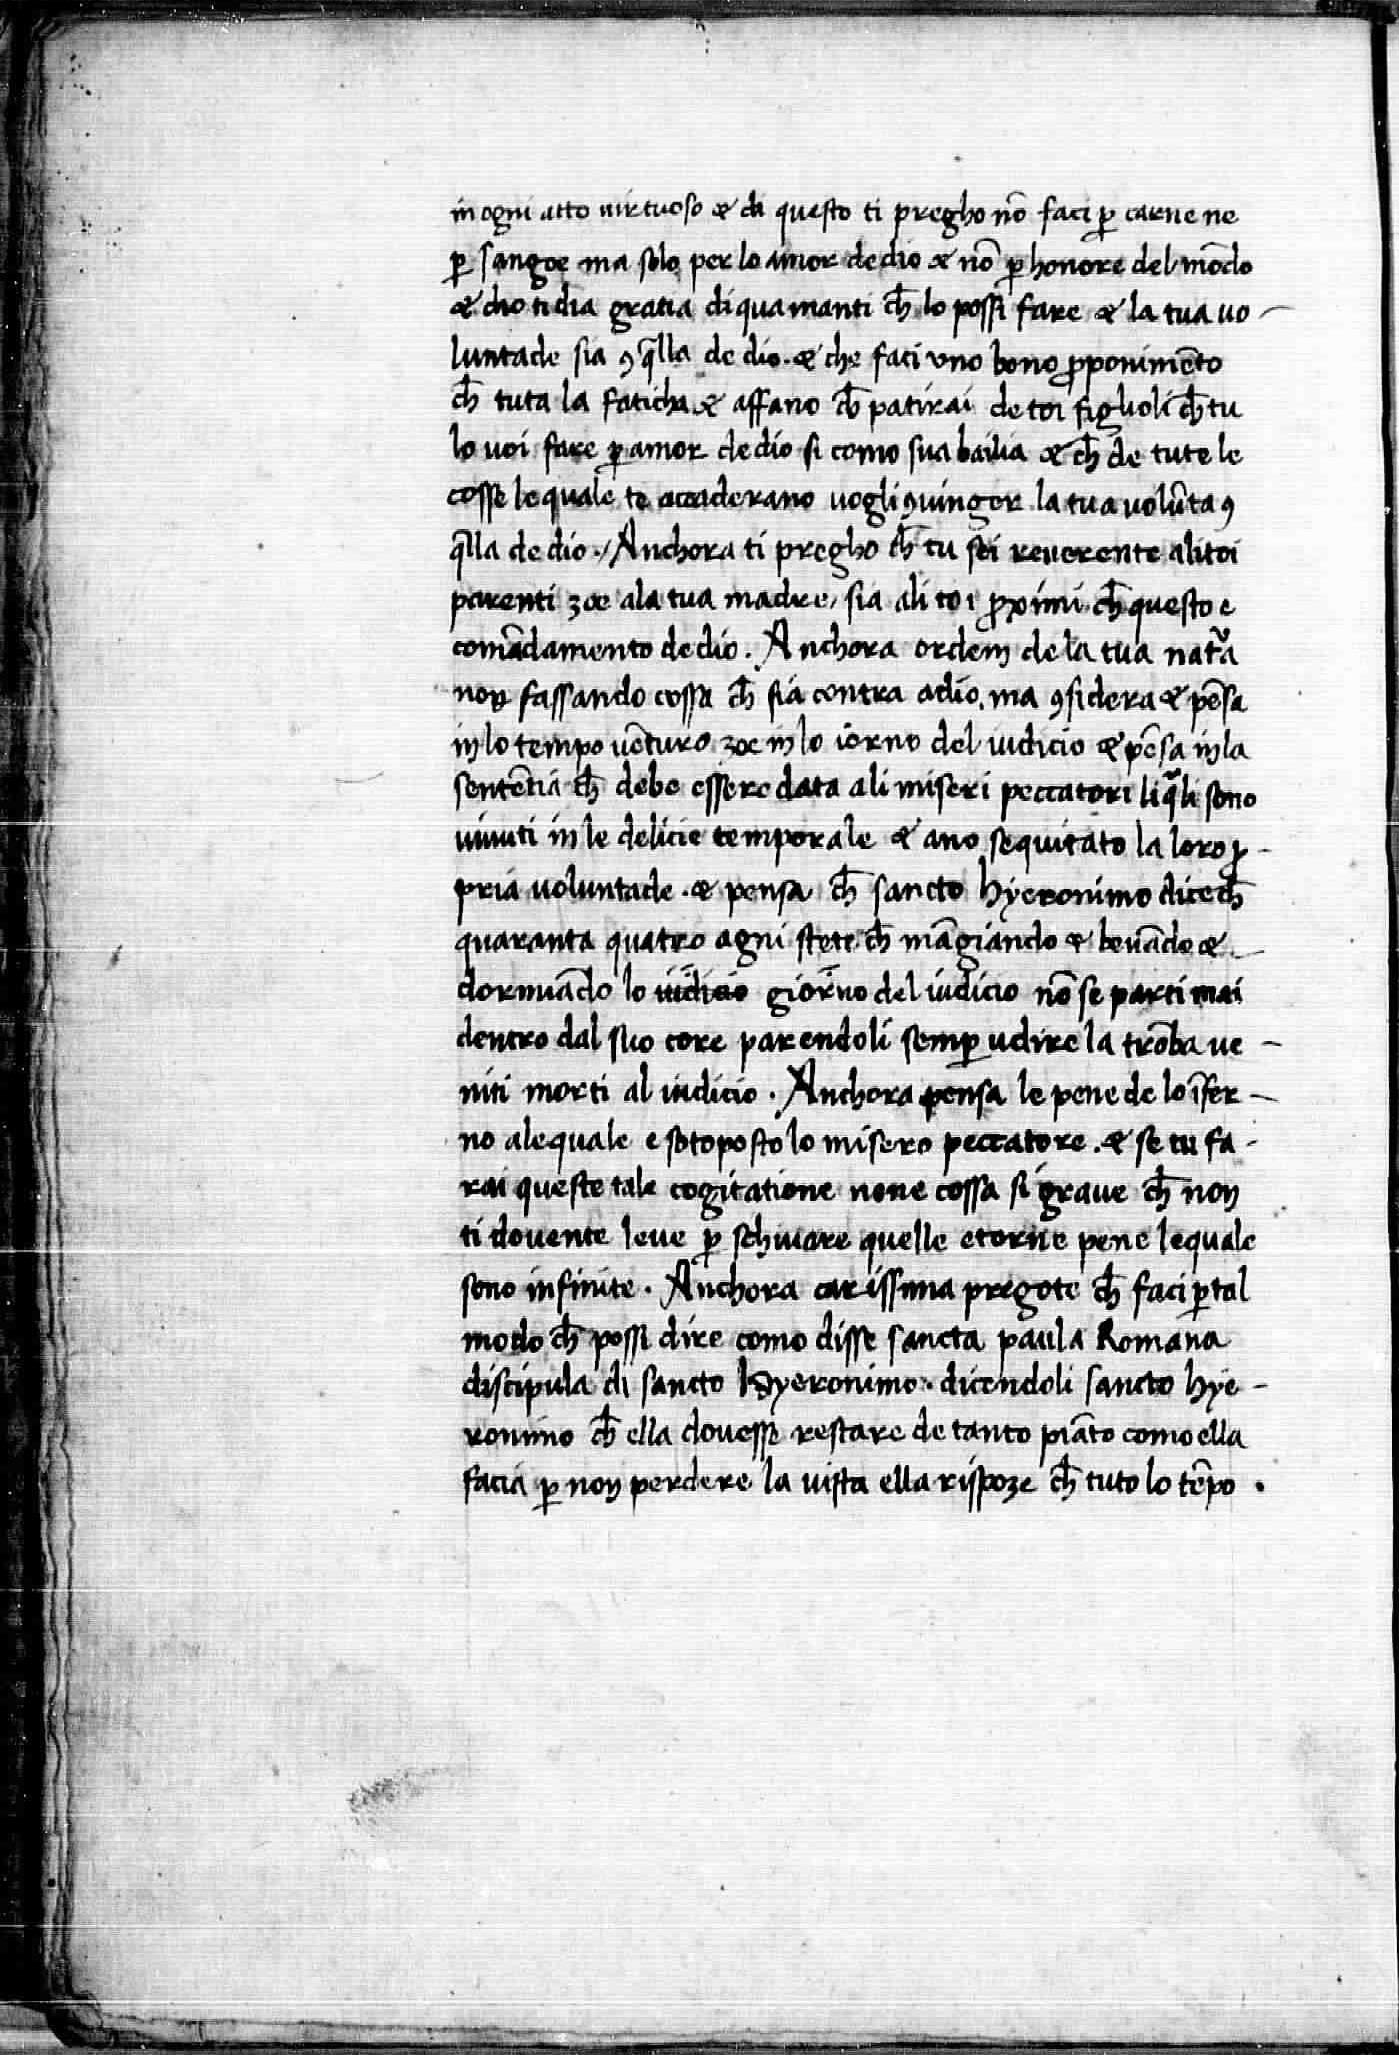 in ogni atto uirtuoso & di questo ti pregho nō faci ꝑ carne ne
ꝑ sangoe ma solo per lo amor de dio & nō ꝑ honore del mōdo
& dio ti dia gratia di qua manti ch̄ lo possi fare & la tua uo-
luntade sia ꝯ q̄lla de dio. & che faci uno bono ꝓponimēto
ch̄ tuta la faticha & affano ch̄ patirai de toi figluoli ch̄ tu
lo uoi fare ꝑ amor de dio si como sua bailia & ch̄ de tute le
cosse le quale te accaderano uogli ꝯuinger la tua volūta ꝯ
q̄lla de dio. Anchora ti pregho ch̄ tu sei reuerente ali toi
parenti zoe ala tua madre, sia ali toi ꝓximi ch̄ questo e
comādamento de dio. Anchora ordem de la tua nat̄a
non fassando cossa ch̄ sia contra a dio, ma ꝯsidera & pēsa
in lo tempo uēturo zoe in lo iorno del iudicio & pēsa in la
sentētia ch̄ debe essere data ali miseri peccatori li q̄li sono
uiuuti in le delicie temporale & ano sequitato la loro ꝓ-
pria uoluntade. & pensa ch̄ sancto Hyeronimo dice ch̄
quaranta quatro agni stete ch̄ māgiando & beuādo &
dormiādo lo iudicio giorno del iudicio nō se parti mai
dentro dal suo core parendoli semꝑ udire la trōba ue-
niti morti al iudicio. Anchora pensa le pene de lo īfer-
no ale quale e sotoposto lo misero peccatore. & se tu fa-
rai queste tale cogitatione none cossa si graue ch̄ non
ti douente leue ꝑ schiuare quelle eterne pene le quale
sono infinite. Anchora carissima pregote ch̄ faci ꝑ tal
modo ch̄ possi dire como disse sancta paula Romana
discipula di sancto Hyeronimo. dicendoli sancto hye-
ronimo ch̄ ella douesse restare de tanto piāto como ella
facia ꝑ non perdere la uista ella rispoze ch̄ tuto lo tēpo.